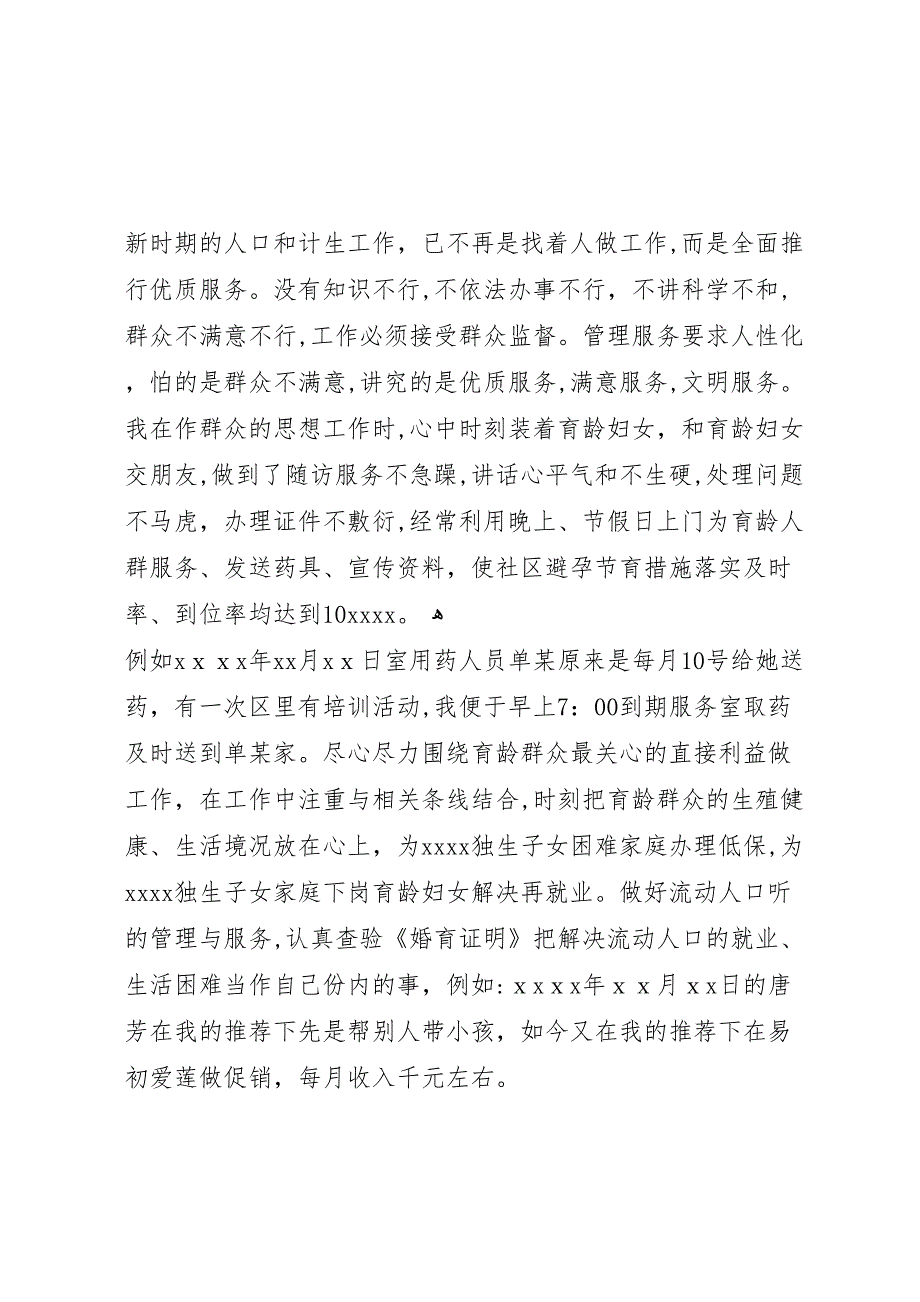 新时期的人口和计生工作，已不再是找着人做工作,而是全面推
行优质服务。没有知识不行,不依法办事不行，不讲科学不和,
群众不满意不行,工作必须接受群众监督。管理服务要求人性化
，怕的是群众不满意,讲究的是优质服务,满意服务,文明服务。
我在作群众的思想工作时,心中时刻装着育龄妇女，和育龄妇女
交朋友,做到了随访服务不急躁,讲话心平气和不生硬,处理问题
不马虎，办理证件不敷衍,经常利用晚上、节假日上门为育龄人
群服务、发送药具、宣传资料，使社区避孕节育措施落实及时
率、到位率均达到10xxxx。
例如xｘxx年xx月xｘ日室用药人员单某原来是每月10号给她送
药，有一次区里有培训活动,我便于早上7：00到期服务室取药
及时送到单某家。尽心尽力围绕育龄群众最关心的直接利益做
工作，在工作中注重与相关条线结合,时刻把育龄群众的生殖健
康、生活境况放在心上，为xxxx独生子女困难家庭办理低保,为
xxxx独生子女家庭下岗育龄妇女解决再就业。做好流动人口听
的管理与服务,认真查验《婚育证明》把解决流动人口的就业、
生活困难当作自己份内的事，例如:ｘxxx年ｘｘ月ｘx日的唐
芳在我的推荐下先是帮别人带小孩，如今又在我的推荐下在易
初爱莲做促销，每月收入千元左右。